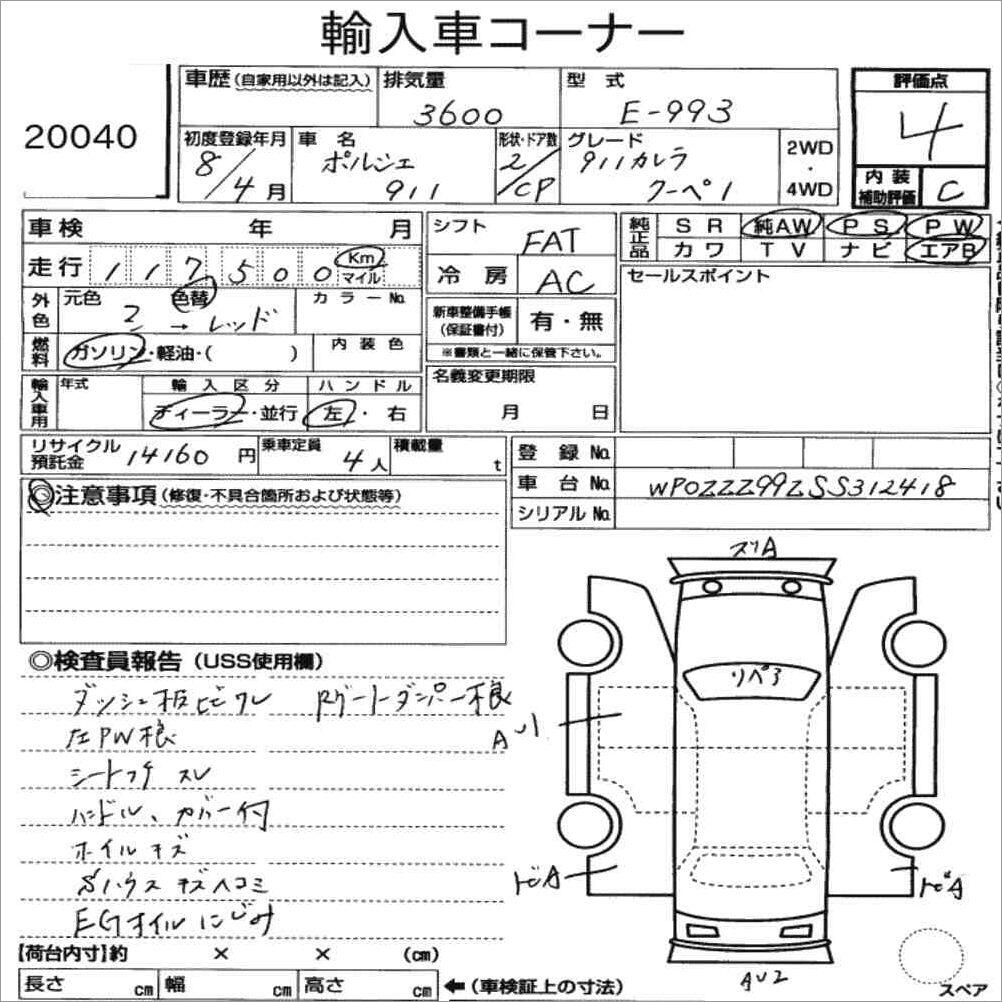 輸入車コーナー
20040
車歴(自家用以外は記入) 排気量 3600 型式 E-993 評価点 4
初度登録年月 8/4月 車名 ポルシェ 911 形状・ドア数 2/CP グレード 911カレラ クーペ1 2WD・4WD 内装補助評価 C
車検 年 月 シフト FAT 純正品 SR 純AW PS PW
走行 117500 Km マイル 冷房 AC カワ TV ナビ エアB
外色 元色 2 → レッド 色替 カラーNo. セールスポイント
新車整備手帳(保証書付) 有・無
※書類と一緒に保管下さい。
燃料 ガソリン・軽油・( ) 内装色
輸入車用 年式 輸入区分 ディーラー・並行 ハンドル 左・右
名義変更期限 月 日
リサイクル預託金 14160円 乗車定員 4人 積載量 t
登録No.
車台No. WP0ZZZ99ZSS312418
シリアルNo.
◎注意事項(修復・不具合箇所および状態等)
◎検査員報告(USS使用欄)
ダッシュ板ビビワレ Rゲートダンパー不良
左PW不良
シートコゲ スレ
ハンドル、カバー付
ホイルキズ
Sハウスキズヘコミ
EGオイルにじみ
スリA
リペア
AU1
トビA
トビA
AU2
スペア
【荷台内寸】約 × × (cm)
長さ cm 幅 cm 高さ cm ←(車検証上の寸法)